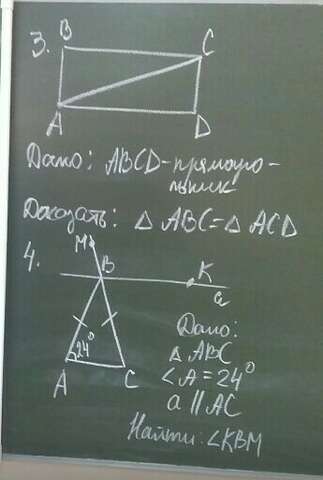 3.
B
C
A
D
Дано: ABCD-прямоуго-
льник
Доказать: △ ABC=△ ACD
4.
M
B
K
a
24°
A
C
Дано:
△ ABC
∠A=24°
a || AC
Найти: ∠KBM